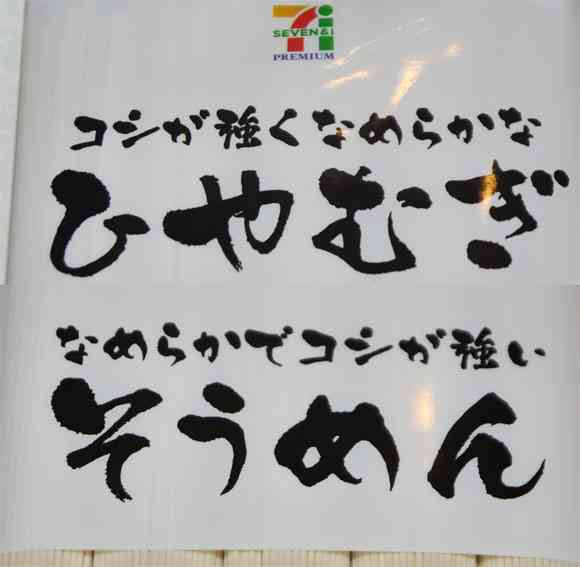 SEVEN&i
PREMIUM
コシが強くなめらかな
ひやむぎ
なめらかでコシが強い
そうめん